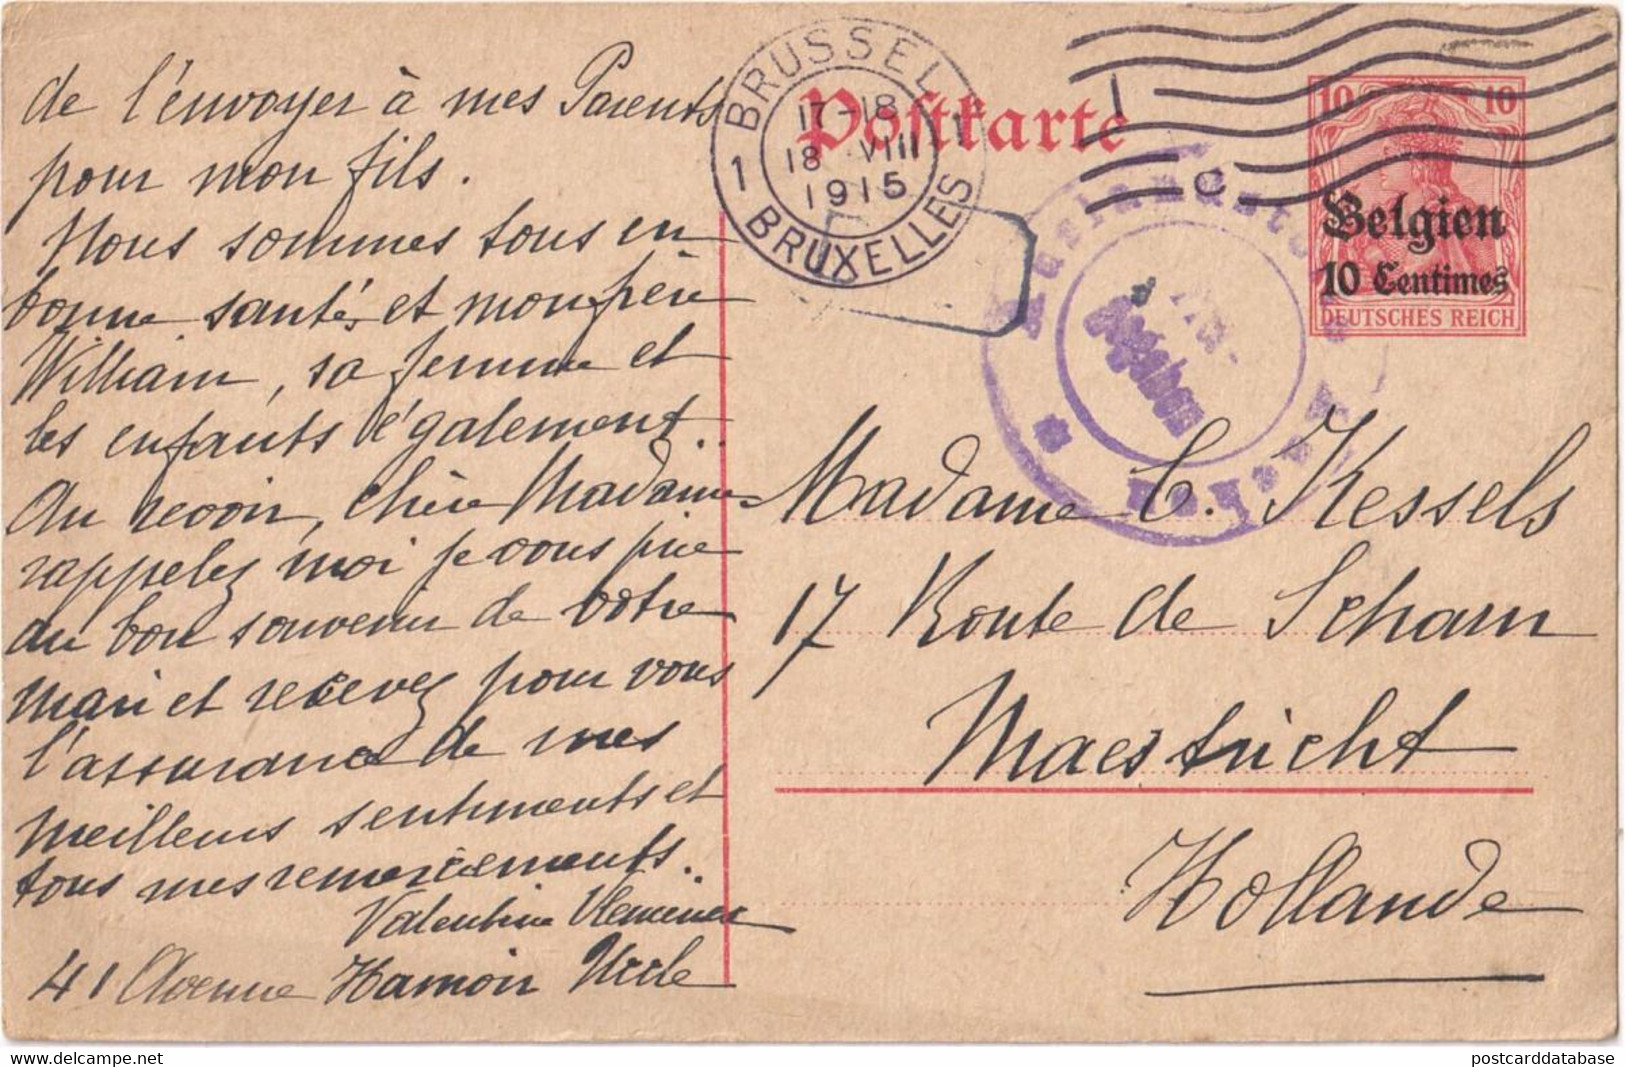 de l'envoyer à mes Parents
pour mon fils.
Nous sommes tous en
bonne santé, et mon père
William, sa femme et
les enfants également.
Au revoir, chère Madame
rappelez moi je vous prie
au bon souvenir de votre
mari et recevez pour vous
l'assurance de mes
meilleurs sentiments et
tous mes remerciements.
Valentine
41 Avenue Hamoir Uccle
BRUSSEL
17-18
18 VIII
1915
1 BRUXELLES 1
Postkarte
10 10
Belgien
10 Centimes
DEUTSCHES REICH
Auslandstelle
Frei-
gegeben
Aachen
Madame C. Kessels
17 Route de Scharn
Maestricht
Hollande
delcampe.net
postcarddatabase